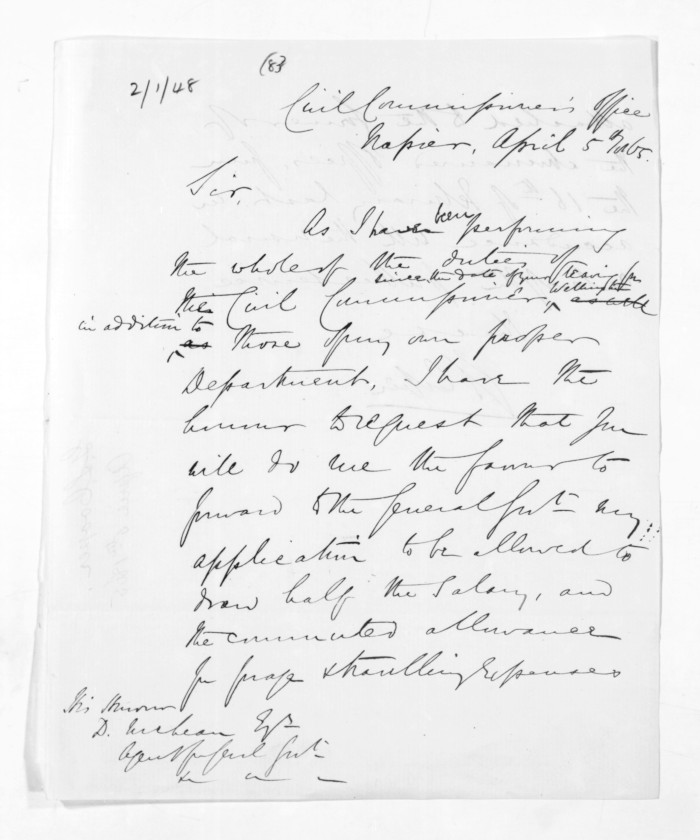 2/1/48
(83
Civil Commissioner's Office
Napier, April 5th 1865.
Sir,
As I have been performing
the whole of the duties of
since the date of your leaving for
the Civil Commissioner Wellington as well
in addition to
as those of my own proper
Department, I have the
honour to request that you
will do me the favour to
forward to the General Govt. my
application to be allowed to
draw half the Salary, and
the commuted allowance
for forage & travelling Expenses
His Honour
D. McLean Esqr.
Agent for Genl Govt.